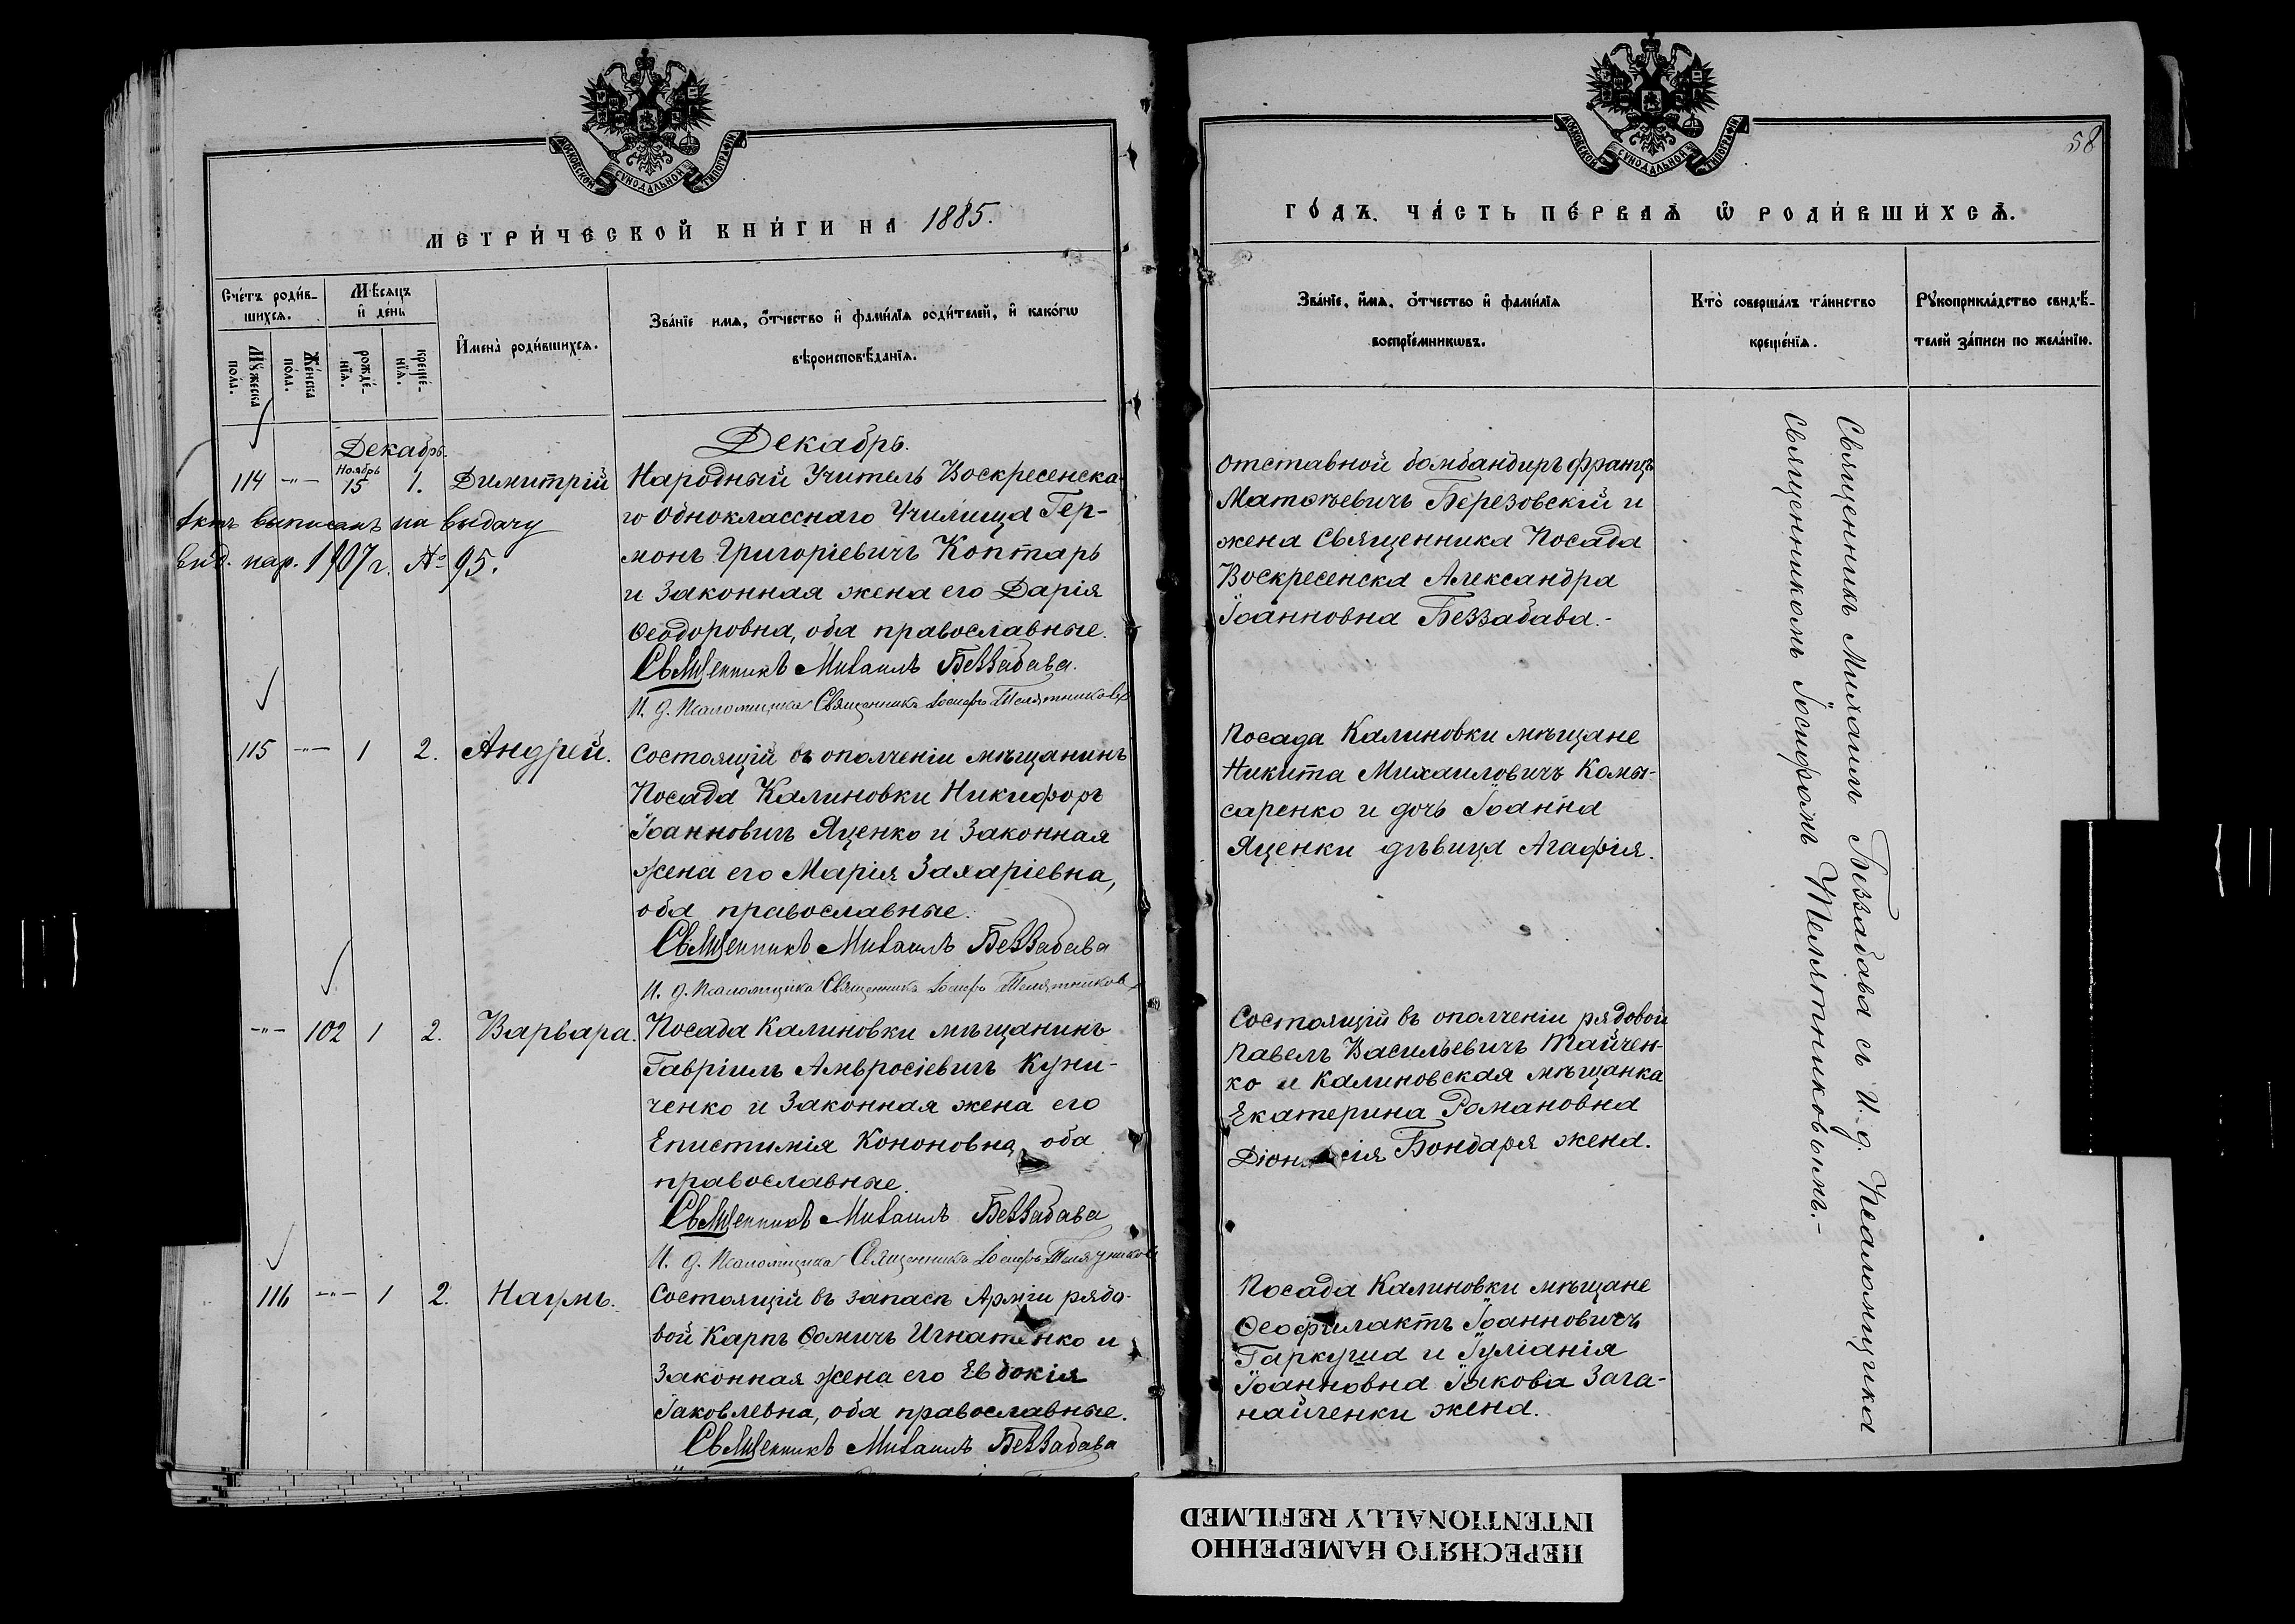 МОСКОВСКОЙ СѴНОДАЛЬНОЙ ТИПОГРАФІИ
МЕТРИ́ЧЕСКОЙ КНИ́ГИ НА 1885.
Сче́тъ роди́в-
шихсѧ.
Мѣ́сѧцъ
и҆ де́нь
Мꙋ́жеска
по́ла.
Же́нска
по́ла.
рожде́-
нїѧ.
креще́-
нїѧ.
И҆мена̀ роди́вшихсѧ.
Зва́нїе имѧ, ѻ҆́тчество и҆ фами́лїѧ роди́телей, и҆ како́гѡ
вѣроисповѣ́данїѧ.
Декабрь.
Декабрь.
114 -"- Ноябрь 15 1. Димитрій
Народный Учитель Воскресенска-
го Одноклассного Училища Гер-
монъ Григоріевичъ Коптарь
и Законная жена его Дарія
Ѳеодоровна, оба православные.
Священникъ Михаилъ Беззабава.
И. д. Псаломщика Священникъ Іосифъ Телятниковъ
Актъ выписанъ на выдачу
вид. нар. 1907 г. № 95.
115 -"- 1 2. Андрей.
Состоящій въ ополченіи мѣщанинъ
Посада Калиновки Никифоръ
Іоанновичъ Яценко и Законная
жена его Марія Захаріевна,
оба православные.
Священникъ Михаилъ Беззабава
И. д. Псаломщика Священникъ Іосифъ Телятниковъ
-"- 102 1 2. Варвара.
Посада Калиновки мѣщанинъ
Гавріилъ Амвросіевичъ Куни-
ченко и Законная жена его
Епистимія Кононовна, оба
православные.
Священникъ Михаилъ Беззабава
И. д. Псаломщика Священникъ Іосифъ Телятниковъ
116 -"- 1 2. Наумъ.
Состоящій въ запасѣ Арміи рядо-
вой Карпъ Ѳомичъ Игнатенко и
Законная жена его Евдокія
Іаковлевна, оба православные.
Священникъ Михаилъ Беззабава
МОСКОВСКОЙ СѴНОДАЛЬНОЙ ТИПОГРАФІИ
58
ГО́ДЪ. ЧА́СТЬ ПЕ́РВАѦ Ѡ҆ РОДИ́ВШИХСѦ.
Зва́нїе, и҆́мѧ, ѻ҆́тчество и҆ фами́лїѧ
воспрїе́мникѡвъ.
Кто̀ соверша́лъ та́инство
креще́нїѧ.
Рꙋкоприкла́дство свидѣ́-
телей за́писи по жела́нїю.
Отставной бомбандиръ Францъ
Матѳѣевичъ Березовскій и
жена Священника Посада
Воскресенска Александра
Іоанновна Беззабава.-
Посада Калиновки мѣщане
Никита Михаиловичъ Комы-
саренко и дочь Іоанна
Яценки дѣвица Агафія.
Состоящій въ ополченіи рядовой
Павелъ Васильевичъ Тайчен-
ко и Калиновская мѣщанка
Екатерина Романовна
Діонисія Бондаря жена.
Посада Калиновки мѣщане
Ѳеофилактъ Іоанновичъ
Гаркуша и Іуліанія
Іоанновна Іакова Зага-
найченки жена.
Священникъ Михаилъ Беззабава съ И. д. Псаломщика
Священникомъ Іосифомъ Телятниковымъ.-
ПЕРЕСНЯТО НАМЕРЕННО
INTENTIONALLY REFILMED